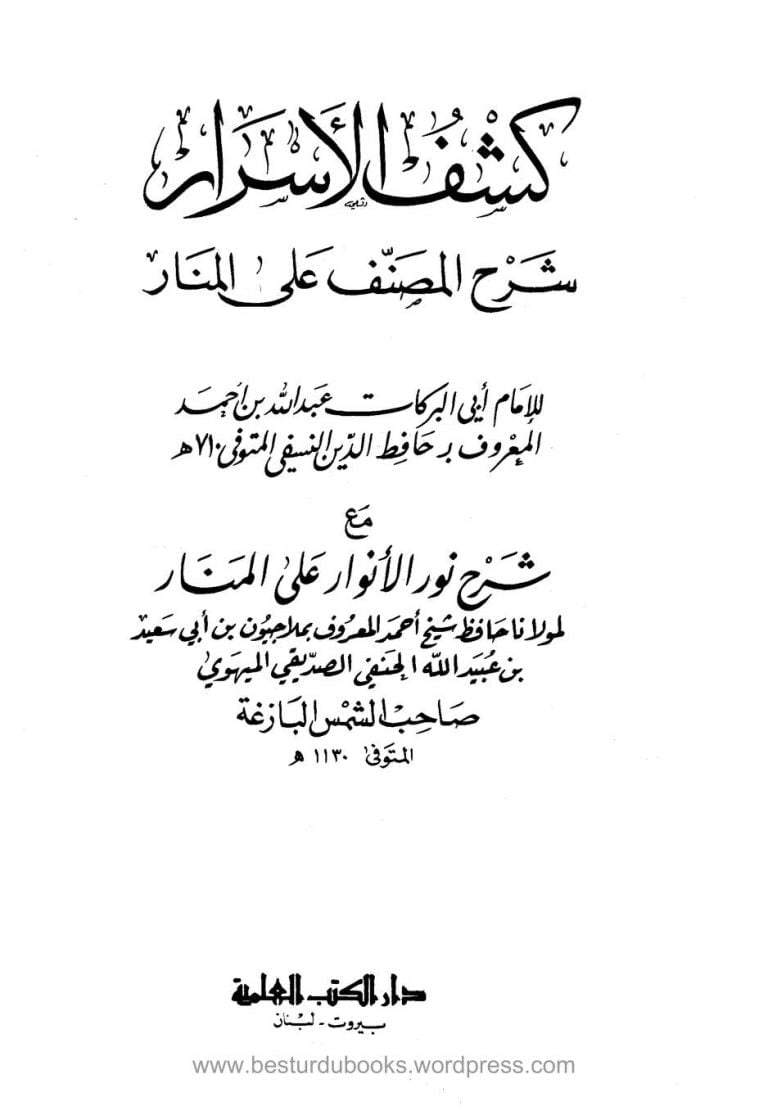 كشف الأسرار
شرح المصنف على المنار
للإمام أبي البركات عبد الله بن أحمد
المعروف بـ حافظ الدين النسفي المتوفى ٧١٠ھ
مع
شرح نور الأنوار على المنار
لمولانا حافظ شيخ أحمد المعروف بملاجيون بن أبي سعيد
بن عبيد الله الحنفي الصديقي الميهوي
صاحب الشمس البازغة
المتوفى ١١٣٠ ھ
دار الكتب العلمية
بيروت - لبنان
www.besturdubooks.wordpress.com